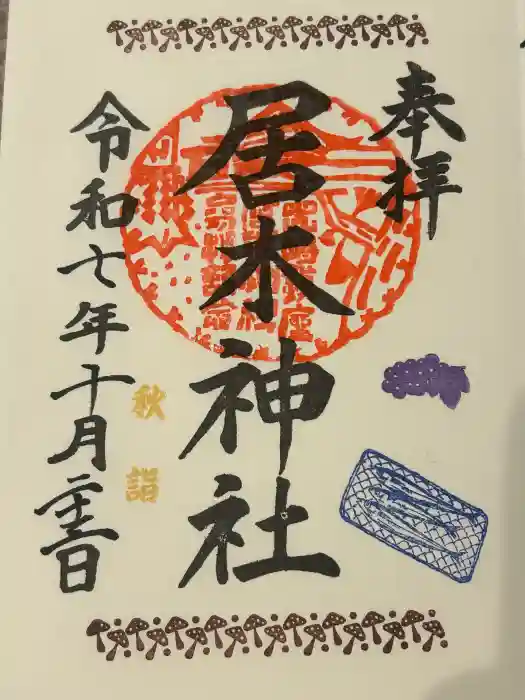 奉拝
居木神社
令和七年十月二十三日
秋
詣